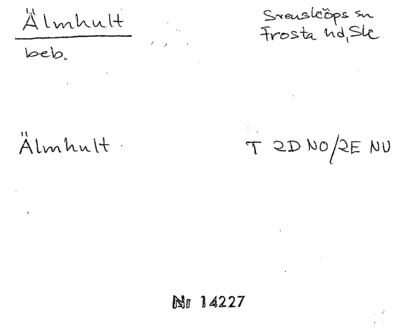 Älmhult
Svensköps sn
Frosta hd, Sk
beb.
Älmhult
T 2D NO/2E NV
Nr 14227